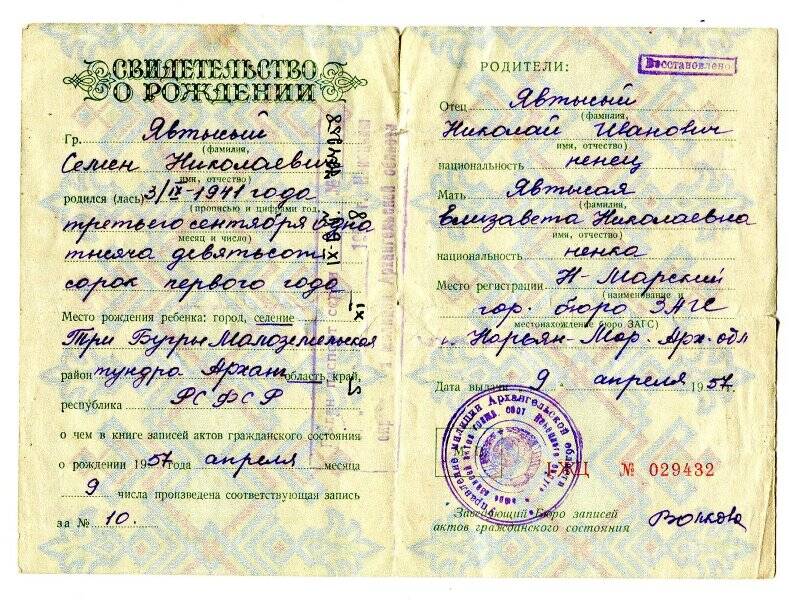 СВИДЕТЕЛЬСТВО
О РОЖДЕНИИ
Гр. Явтысый
(фамилия,
Семен Николаевич
имя, отчество)
родился (лась) 3/IX-1941 года
(прописью и цифрами год,
третьего сентября одна
месяц и число)
тысяча девятьсот
сорок первого года
Место рождения ребенка: город, селение
Три Бугры Малоземельская
район тундра Арханг область, край,
республика РСФСР
о чем в книге записей актов гражданского состояния
о рождении 1957 года апреля месяца
9 числа произведена соответствующая запись
за № 10.
РОДИТЕЛИ:
Восстановлено
Отец Явтысый
(фамилия,
Николай Иванович
имя, отчество)
национальность ненец
Мать Явтысая
(фамилия,
Елизавета Николаевна
имя, отчество)
национальность ненка
Место регистрации Н-Марский
(наименование и
гор. бюро ЗАГС
местонахождение бюро ЗАГС)
г. Нарьян-Мар. Арх. обл
Дата выдачи 9 апреля 1957.
I-ЖЦ № 029432
Заведующий Бюро записей
актов гражданского состояния Волкова